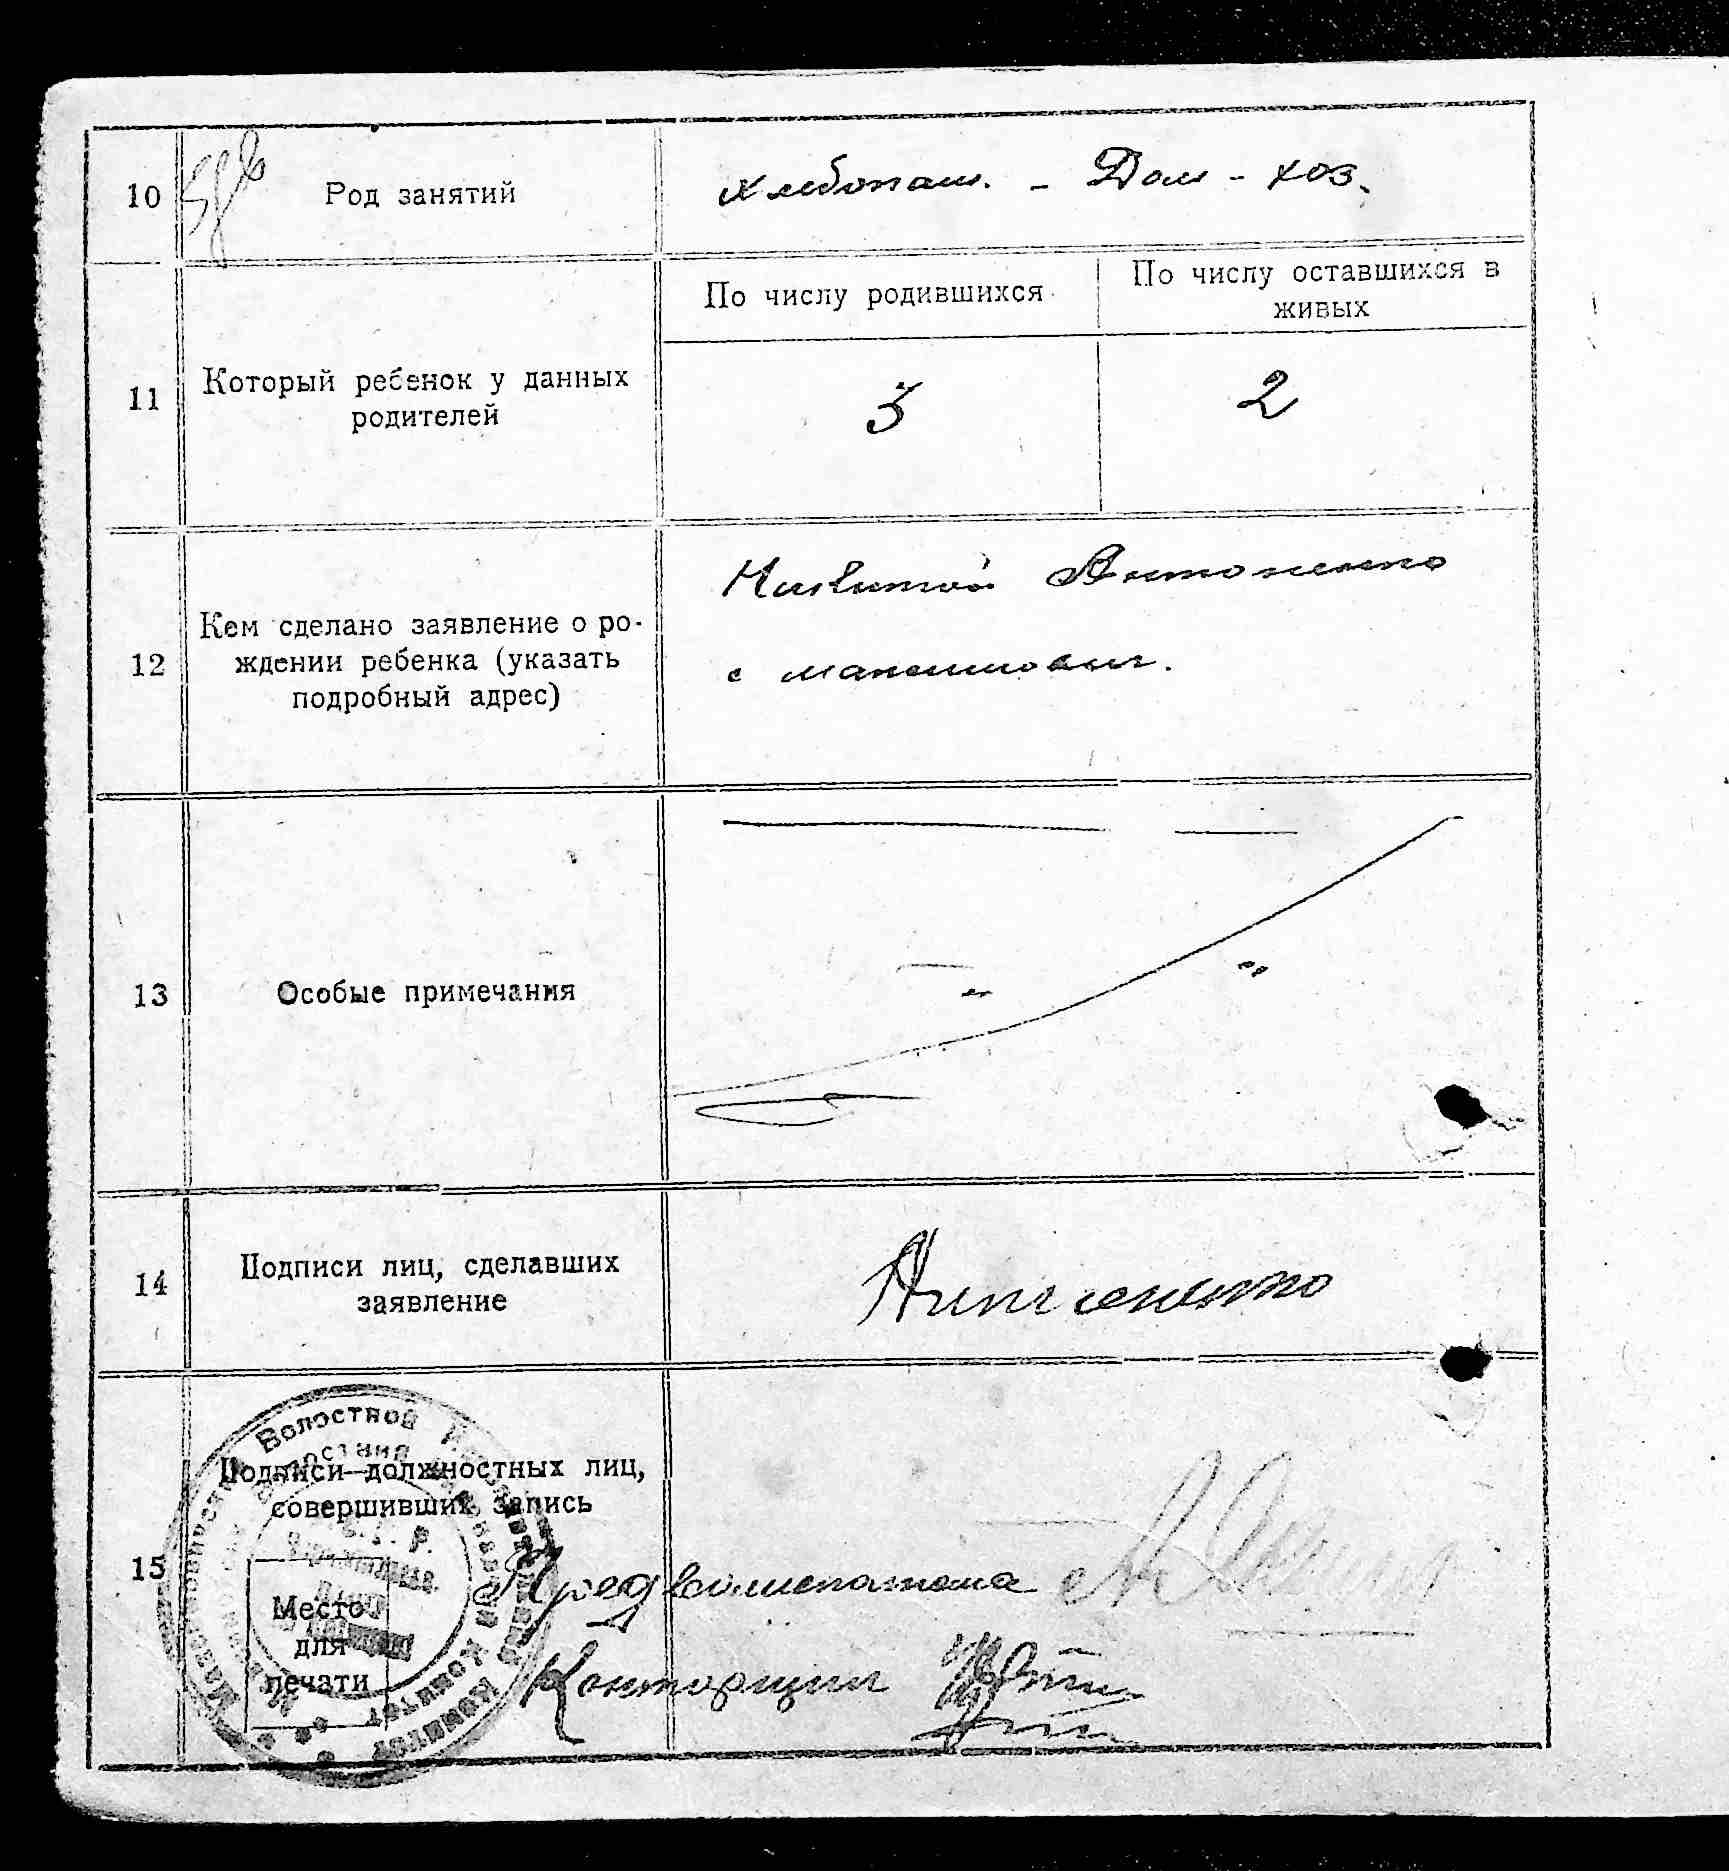 10 Род занятий
хлебопаш. - Дом - хоз.
По числу родившихся
По числу оставшихся в
живых
11 Который ребенок у данных
родителей
3
2
12 Кем сделано заявление о ро-
ждении ребенка (указать
подробный адрес)
Антоненко
с
13 Особые примечания
14 Подписи лиц, сделавших
заявление
Антоненко
Волостной
Комитет
15 Подписи должностных лиц,
совершивших запись
Место
для
печати
Пред волисполкома
Конторщик